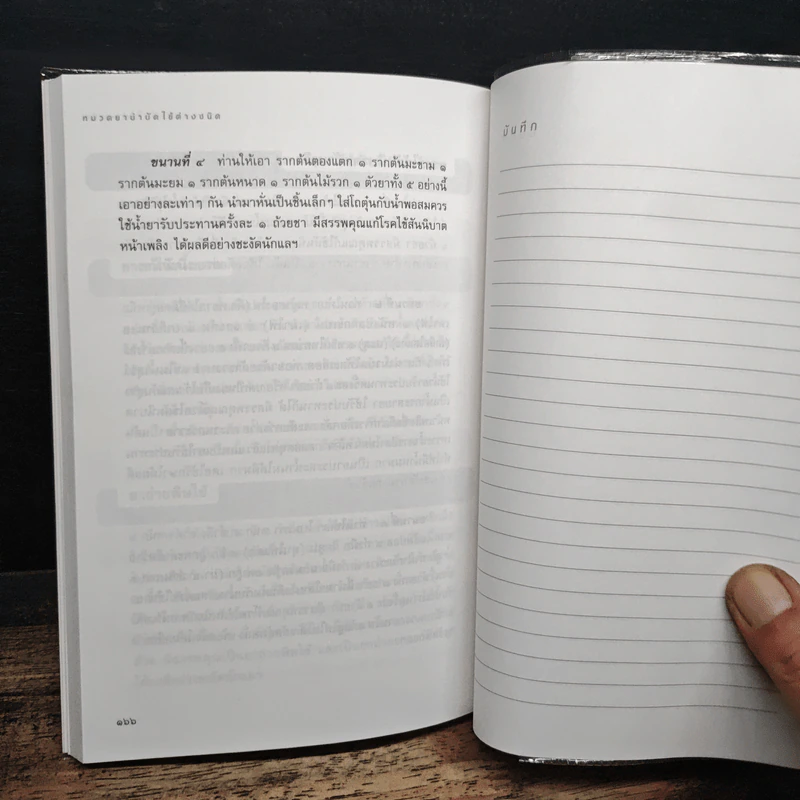 หมวดยาบำบัดไข้ต่างชนิด
ขนานที่ ๔ ท่านให้เอา รากต้นตองแตก ๑ รากต้นมะขาม ๑
รากต้นมะยม ๑ รากต้นหนาด ๑ รากต้นไม้รวก ๑ ตัวยาทั้ง ๕ อย่างนี้
เอาอย่างละเท่าๆ กัน นำมาหั่นเป็นชิ้นเล็กๆ ใส่โถตุ๋นกับน้ำพอสมควร
ใช้น้ำยารับประทานครั้งละ ๑ ถ้วยชา มีสรรพคุณแก้โรคไข้สันนิบาต
หน้าเพลิง ได้ผลดีอย่างชะงัดนักแลฯ
๑๖๖
บันทึก